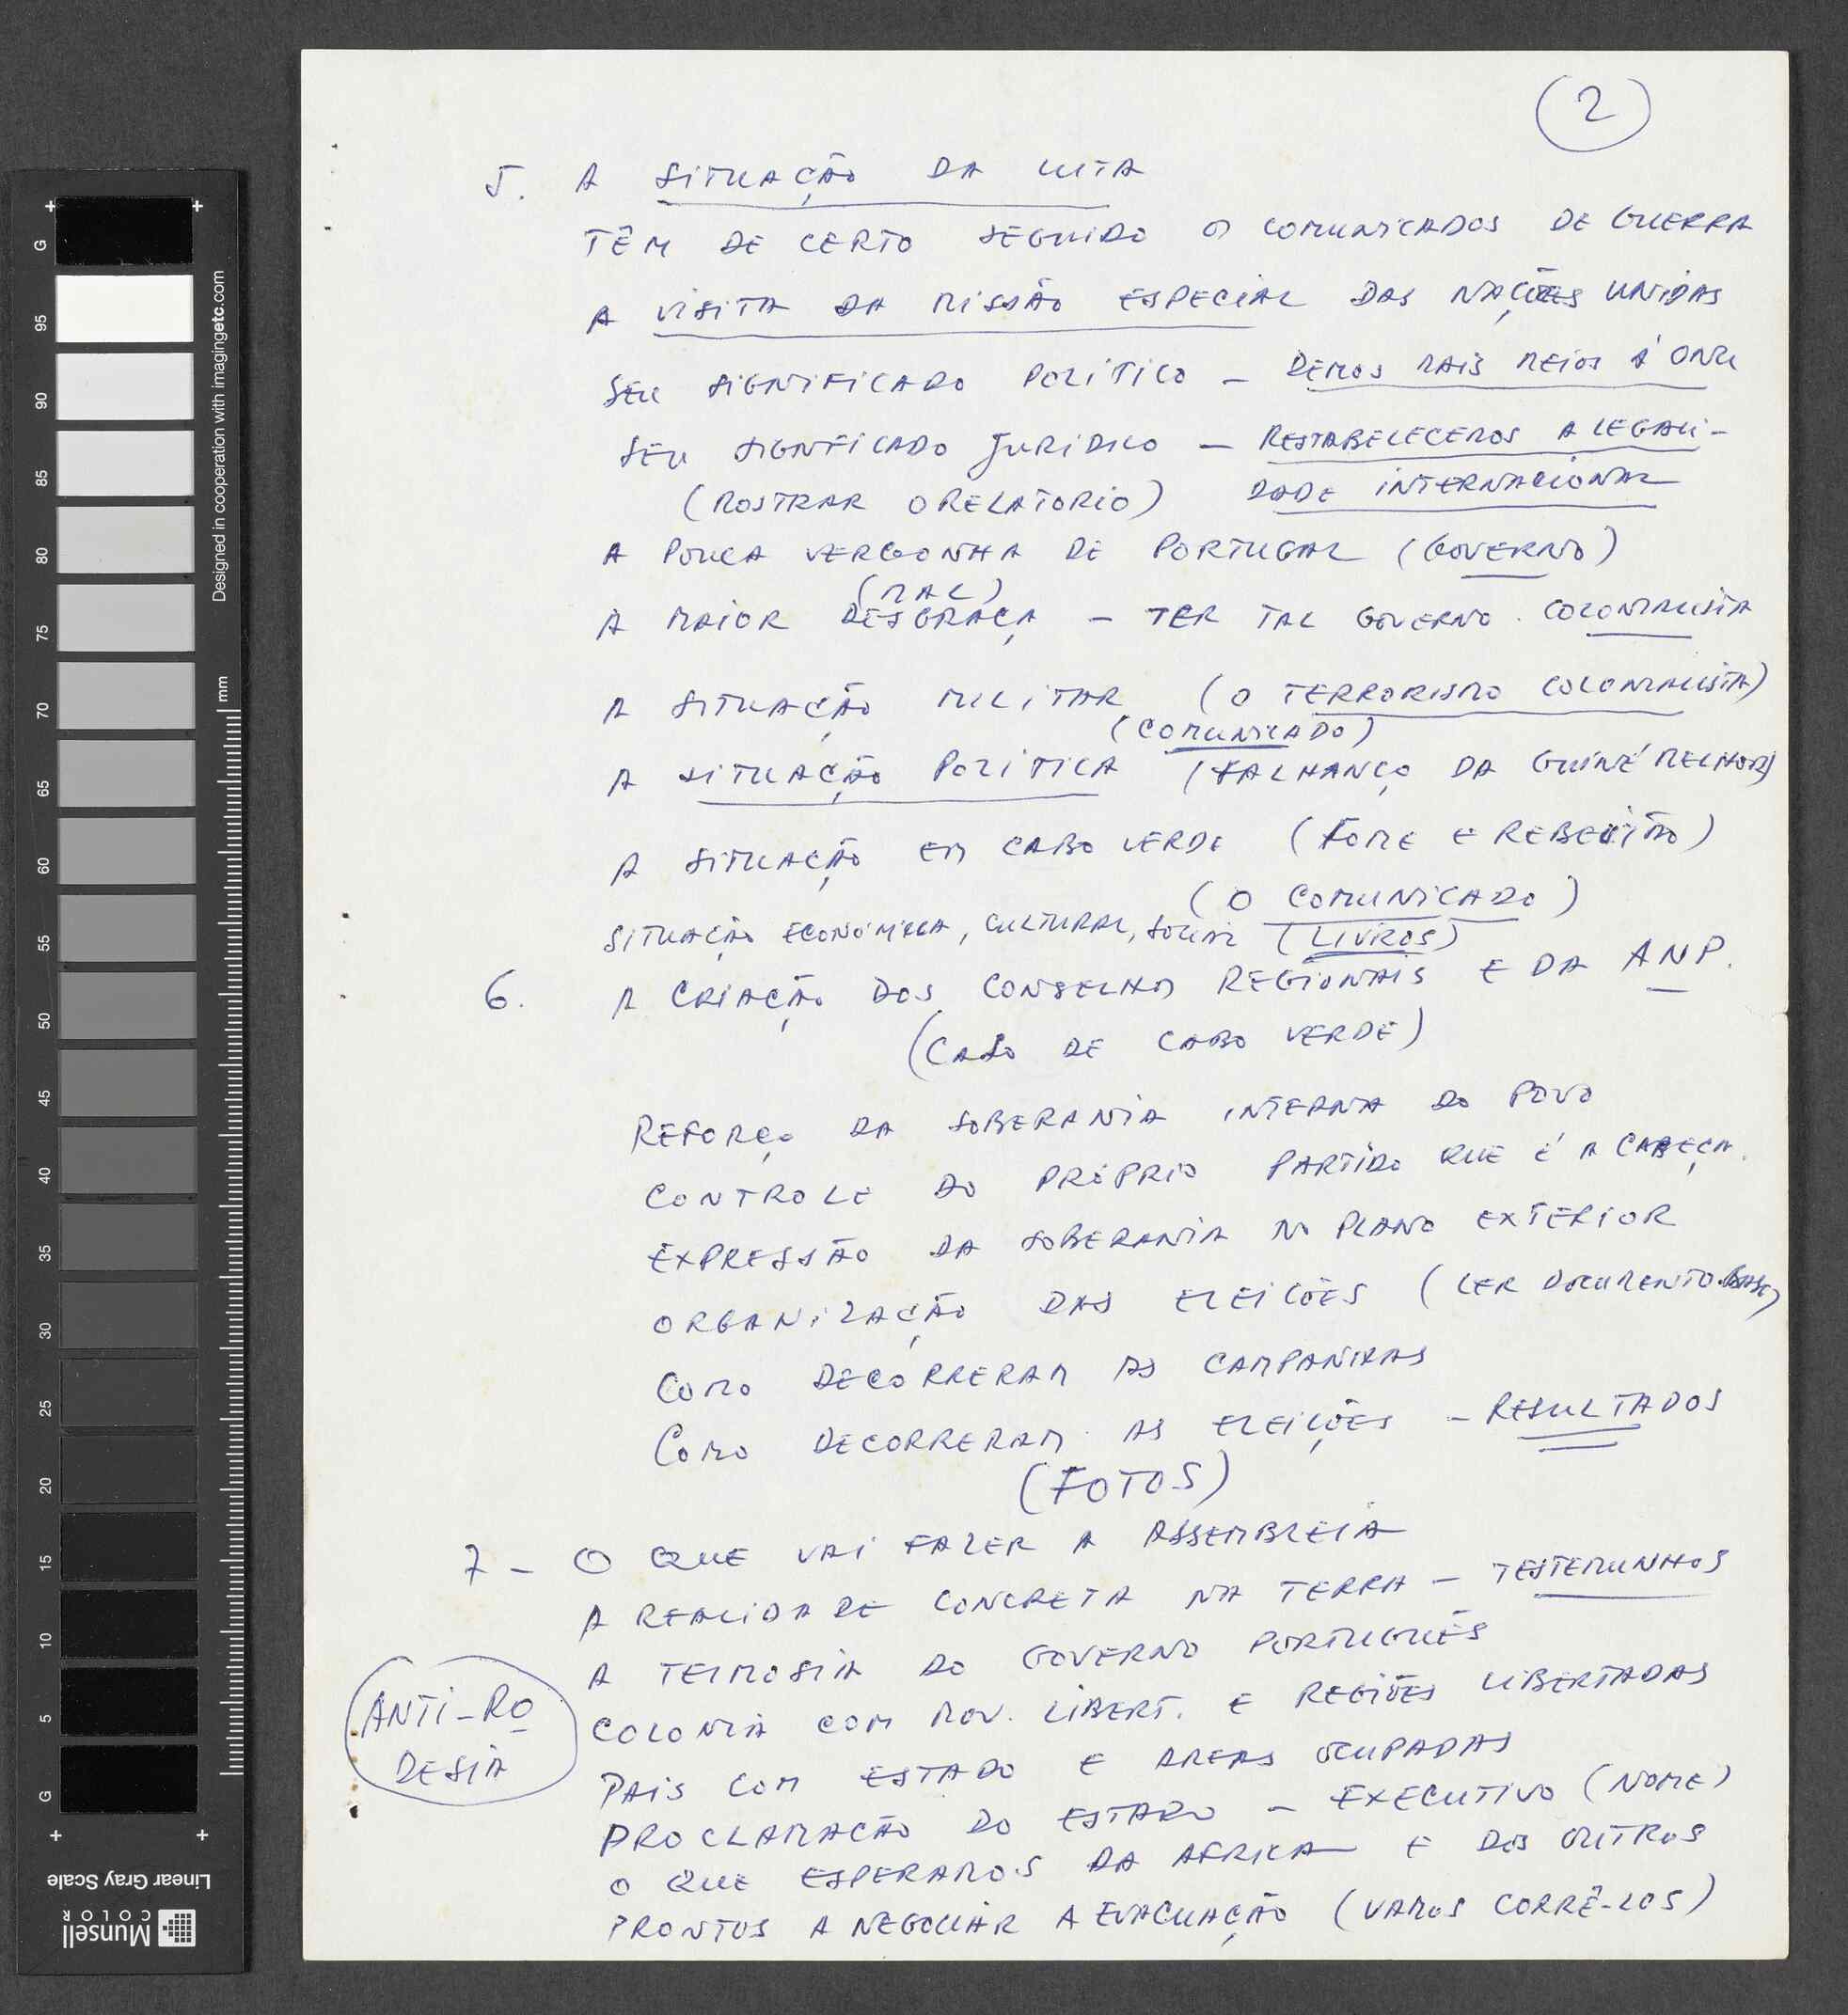 2
5. A SITUAÇÃO DA LUTA
TÊM DE CERTO SEGUIDO OS COMUNICADOS DE GUERRA
A VISITA DA MISSÃO ESPECIAL DAS NAÇÕES UNIDAS
SEU SIGNIFICADO POLITICO – DEMOS MAIS MEIOS Á ONU
SEU SIGNFICADO JURIDICO – RESTABELECEMOS A LEGALI-
(MOSTRAR O RELATORIO) DADE INTERNACIONAL
A POUCA VERGONHA DE PORTUGAL (GOVERNO)
(MAL)
A MAIOR DESGRAÇA – TER TAL GOVERNO COLONIALISTA
A SITUAÇÃO MILITAR (O TERRORISMO COLONIALISTA)
(COMUNICADO)
A SITUAÇÃO POLITICA (FALHANÇO DA GUINÉ MELHOR)
A SITUAÇÃO EM CABO VERDE (FOME E REBELIÃO)
(O COMUNICADO)
SITUAÇÃO ECONÓMICA, CULTURAL, SOCIAL (LIVROS)
6. A CRIAÇÃO DOS CONSELHOS REGIONAIS E DA ANP.
(CASO DE CABO VERDE)
REFORÇO DA SOBERANIA INTERNA DO POVO
CONTROLE DO PRÓPRIO PARTIDO QUE É A CABEÇA.
EXPRESSÃO DA SOBERANIA NO PLANO EXTERIOR
ORGANIZAÇÃO DAS ELEICÕES (LER DOCUMENTO BASE)
COMO DECORRERAM AS CAMPANHAS
COMO DECORRERAM AS ELEIÇÕES – RESULTADOS
(FOTOS)
7 – O QUE VAI FAZER A ASSEMBLEIA
A REALIDADE CONCRETA NA TERRA – TESTEMUNHOS
A TEIMOSIA DO GOVERNO PORTUGUÊS
ANTI-RO
DESIA
COLONIA COM MOV. LIBERT. E REGIÕES LIBERTADAS
PAIS COM ESTADO E AREAS OCUPADAS
PROCLAMAÇÃO DO ESTADO – EXECUTIVO (NOME)
O QUE ESPERAMOS DA AFRICA E DOS OUTROS
PRONTOS A NEGOCIAR A EVACUAÇÃO (VAMOS CORRÊ-LOS)
G 95 90 85 80 75 70 65 60 55 50 45 40 35 30 25 20 15 10 5 G
Designed in cooperation with imagingetc.com
mm
Linear Gray Scale
Munsell
COLOR